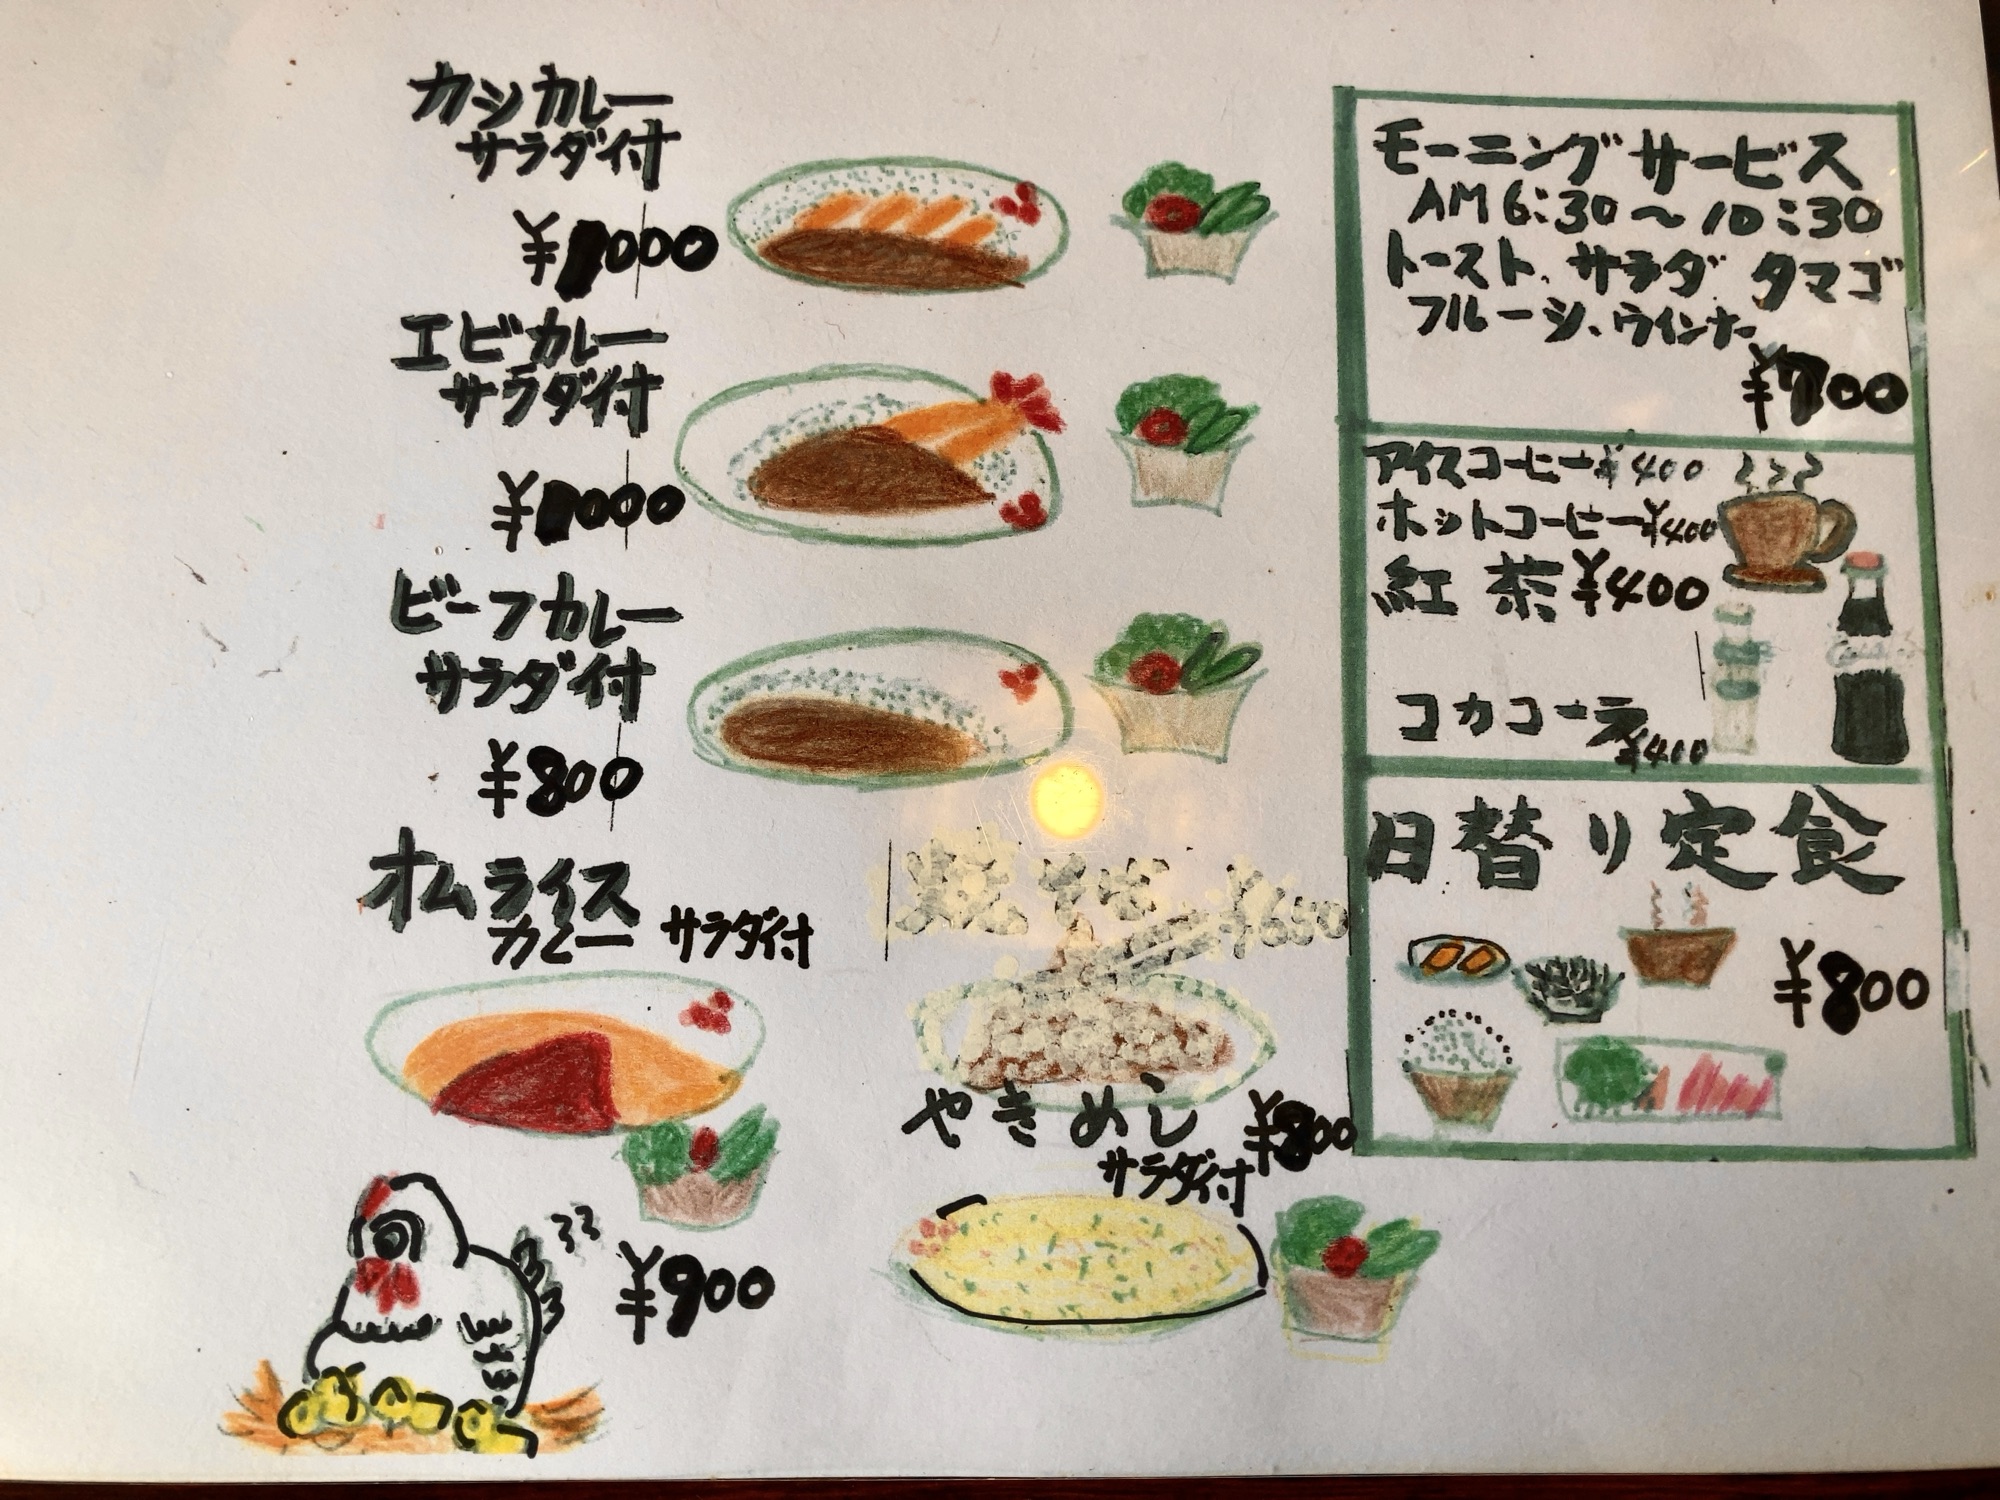 カシカレー
サラダ付
¥1000
エビカレー
サラダ付
¥1000
ビーフカレー
サラダ付
¥800
オムライス
カレー サラダ付
¥900
焼そば ¥650
やきめし ¥800
サラダ付
モーニングサービス
AM6:30〜10:30
トースト、サラダ タマゴ
フルーシ、ウインナー
¥700
アイスコーヒー¥400
ホットコーヒー¥400
紅茶¥400
コカコーラ
¥400
日替り定食
¥800